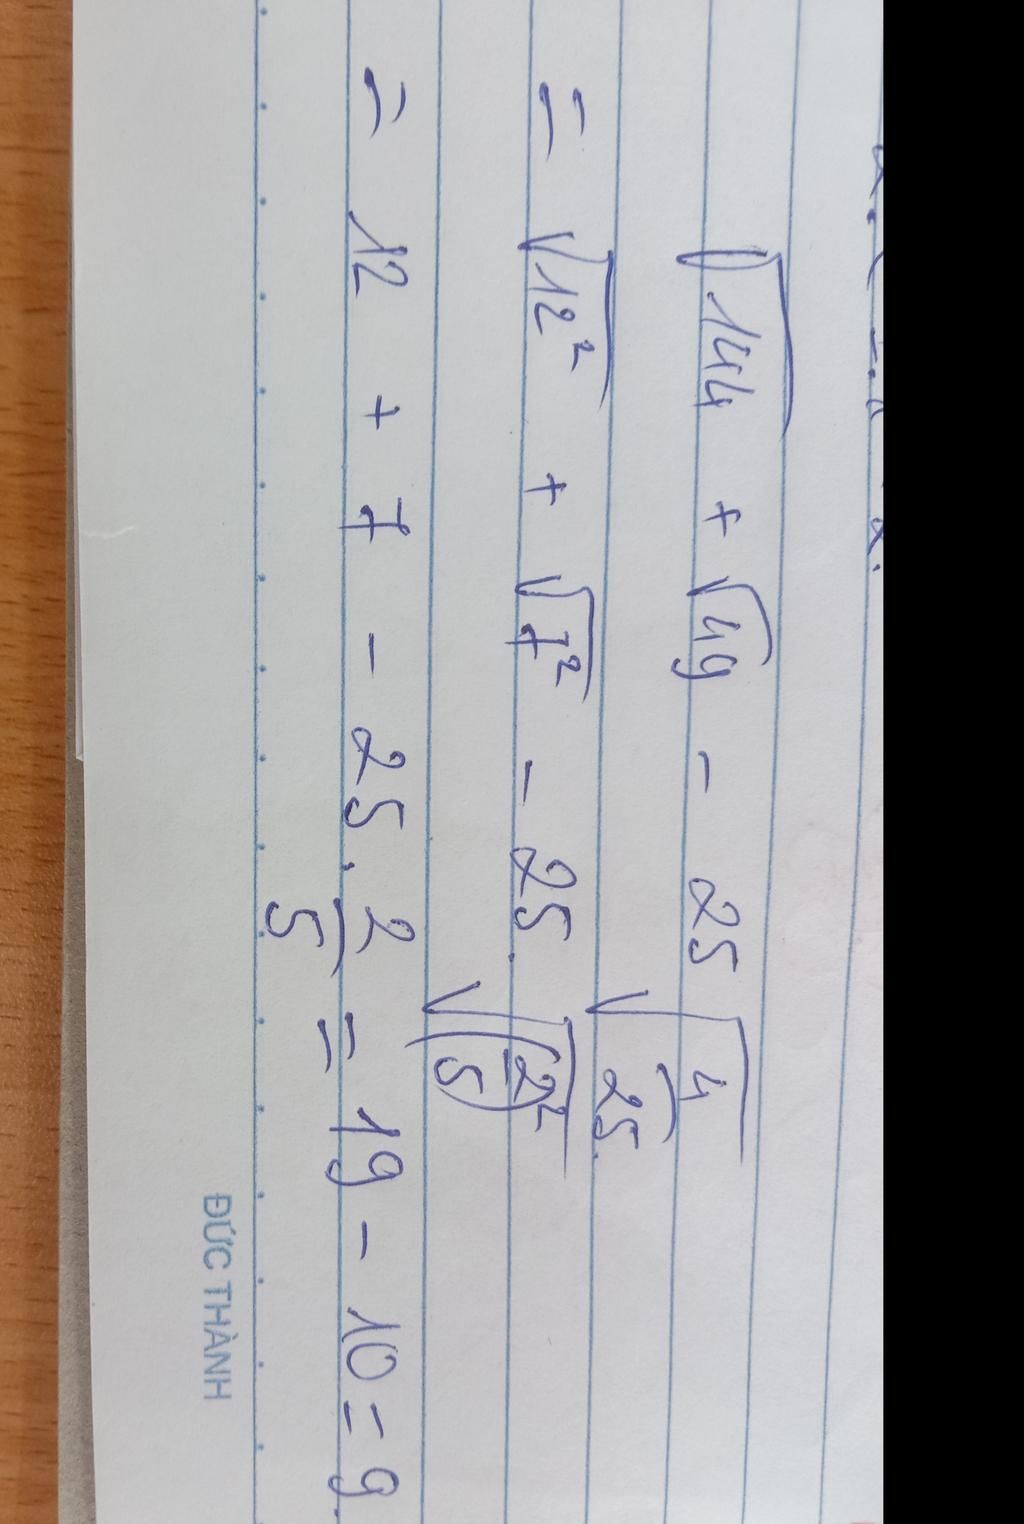 √144 + √49 - 25 √(4/25)
= √12² + √7² - 25. √(2/5)²
= 12 + 7 - 25. 2/5 = 19 - 10 = 9.
ĐỨC THÀNH